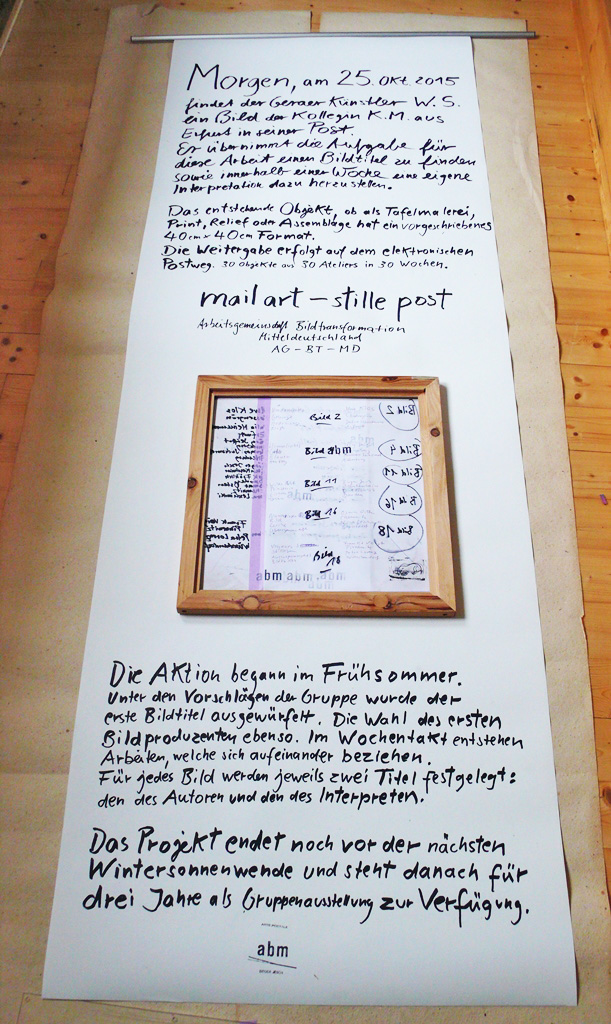 Morgen, am 25. Okt. 2015
findet der Geraer Künstler W. S.
ein Bild der Kollegin K. M. aus
Erfurt in seiner Post.
Er übernimmt die Aufgabe für
diese Arbeit einen Bildtitel zu finden
sowie innerhalb einer Woche eine eigene
Interpretation dazu herzustellen.
Das entstehende Objekt, ob als Tafelmalerei,
Print, Relief oder Assemblage hat ein vorgeschriebenes
40cm x 40cm Format.
Die Weitergabe erfolgt auf dem elektronischen
Postweg. 30 Objekte aus 30 Ateliers in 30 Wochen.
mail art – stille post
Arbeitsgemeinschaft Bildtransformation
Mitteldeutschland
AG – BT – MD
Bild 2
Bild 2
Bild abm
Bild 4
Bild 11
Bild 11
Bild 16
Bild 16
Bild 18
Bild 18
abm abm abm
Die Aktion begann im Frühsommer.
Unter den Vorschlägen der Gruppe wurde der
erste Bildtitel ausgewürfelt. Die Wahl des ersten
Bildproduzenten ebenso. Im Wochentakt entstehen
Arbeiten, welche sich aufeinander beziehen.
Für jedes Bild werden jeweils zwei Titel festgelegt:
den des Autoren und den des Interpreten.
Das Projekt endet noch vor der nächsten
Wintersonnenwende und steht danach für
drei Jahre als Gruppenausstellung zur Verfügung.
abm